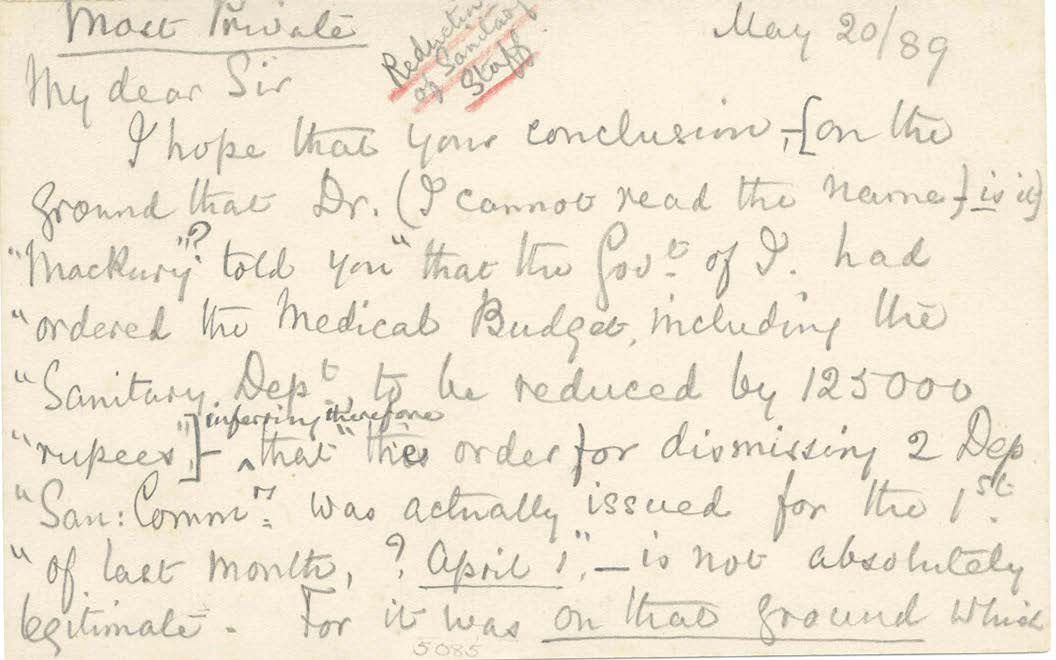 Most Private
May 20/89
Reduction
of Sanitary
Staff
My dear Sir
I hope that your conclusion, -[on the
ground that Dr. (I cannot read the name} is it)
"Mackury"? told you "that the Govt. of I. had
"ordered the Medical Budget, including the
"Sanitary Dept., to be reduced by 125000
"rupees"]- inferring therefore that "the order for dismissing 2 Dep
"San: Commrs. was actually issued for the 1st.
"of last month, ? April 1", — is not absolutely
legitimate. For it was on that ground which
5085